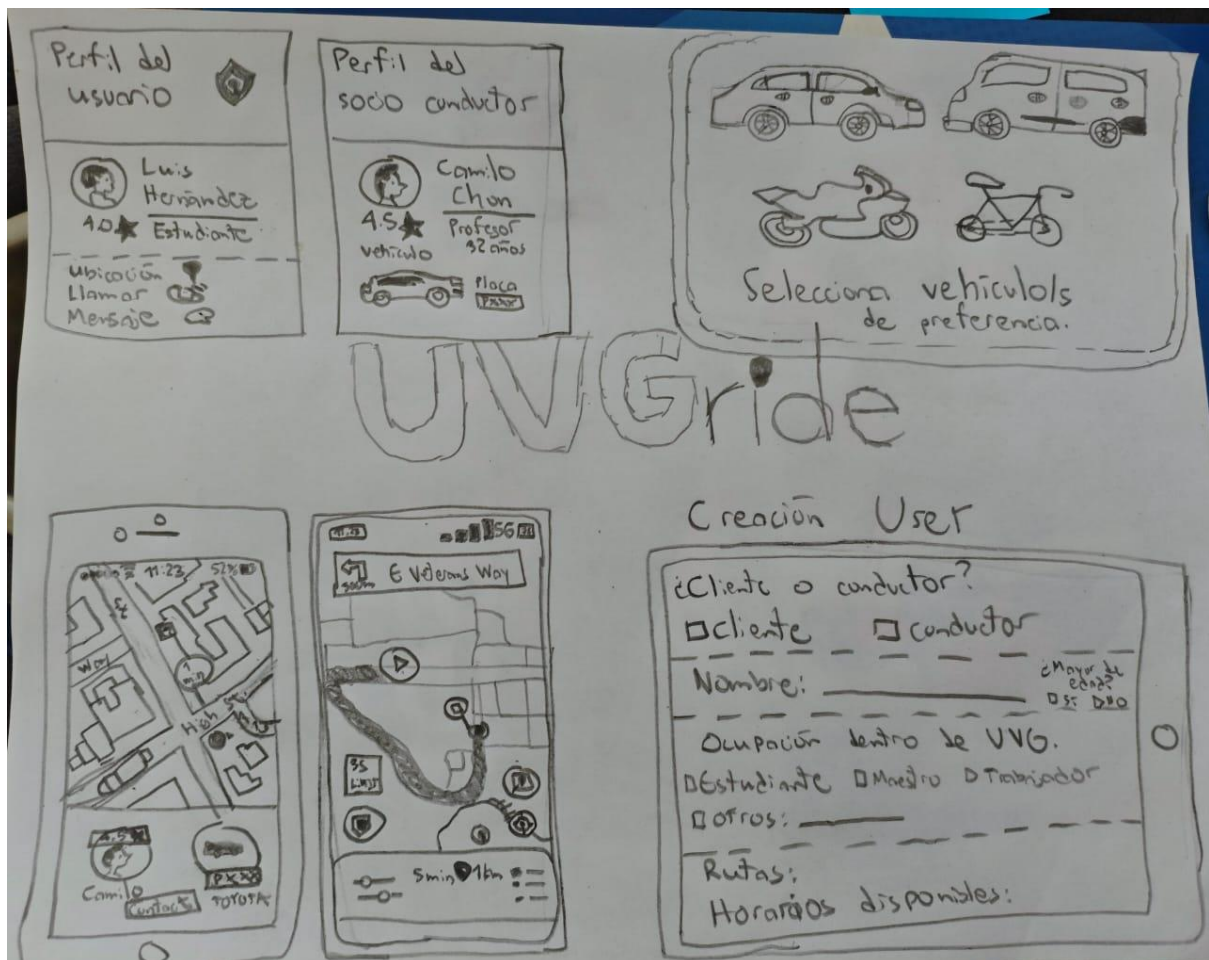 Perfil del
usuario
Luis
Hernández
4.0
Estudiante
Ubicación
Llamar
Mensaje
Perfil del
socio conductor
Camilo
Chon
4.5
Profesor
32 años
vehículo
Placa
PXXX
Selecciona vehículo/s
de preferencia.
UVGride
11:23
52%
Way
High St
4.5
Camilo
Contacto
PXXX
TOYOTA
5G
E Veterans Way
35
Limit
5min 1km
Creación User
¿Cliente o conductor?
Cliente
conductor
Nombre:
¿Mayor de
edad?
Si No
Ocupación dentro de UVG.
Estudiante Maestro Trabajador
otros:
Rutas:
Horarios disponibles: